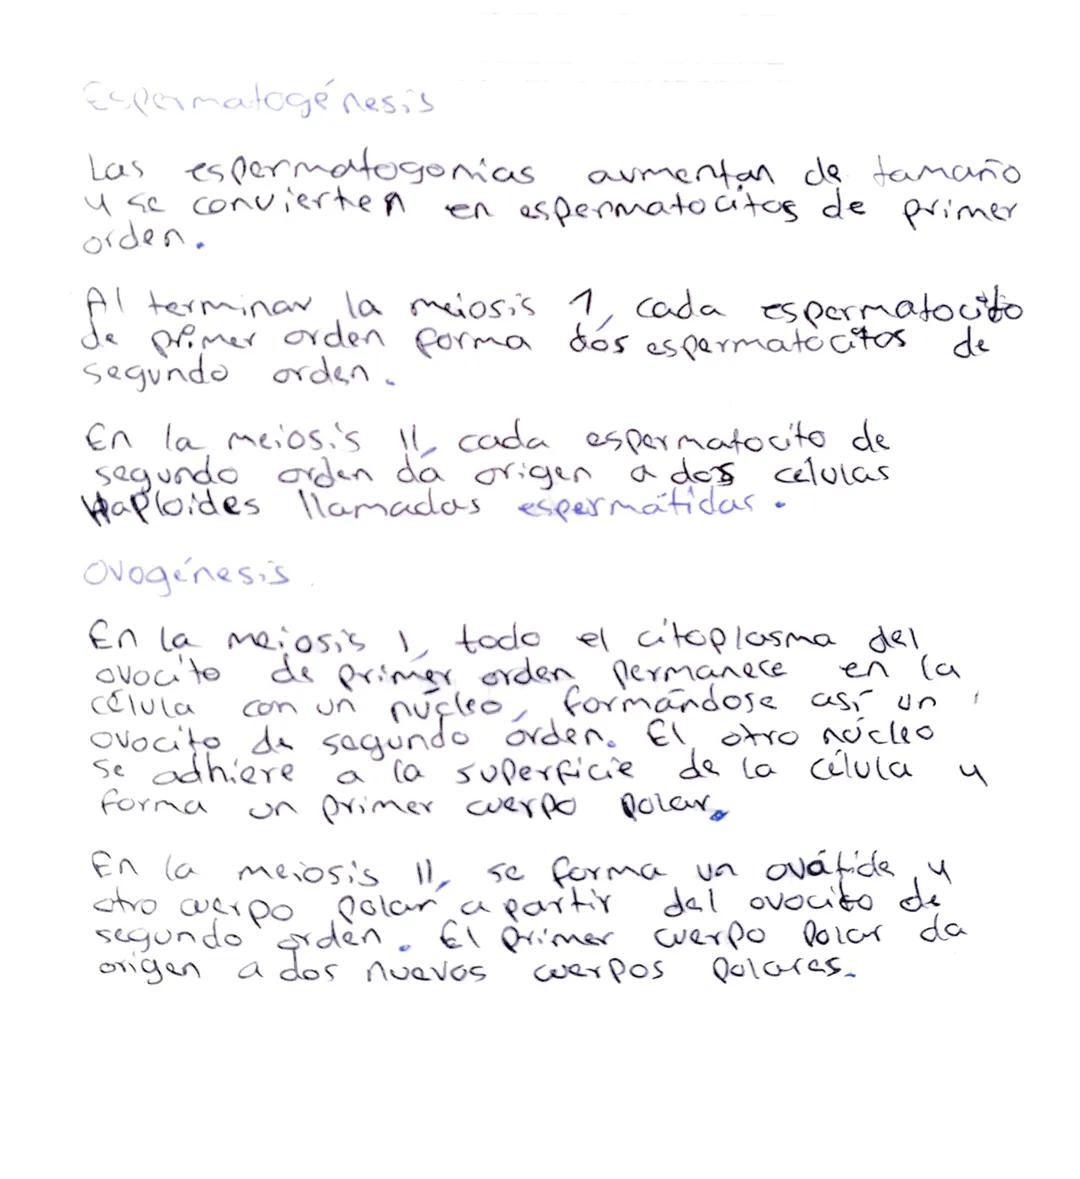 Espermatogénesis
Las espermatogonias aumentan de tamaño
y se convierten en espermatocitos de primer
orden.
Al terminar la meiosis 1, cada espermatocito
de primer orden forma dos espermatocitos de
segundo orden.
En la meiosis II, cada espermatocito de
segundo orden da origen a dos células
Haploides llamadas espermátidas.
Ovogénesis
En la meiosis I, todo el citoplasma del
ovocito de primer orden permanece en la
célula con un núcleo, formándose así un
ovocito de segundo orden. El otro núcleo
se adhiere a la superficie de la célula y
forma un primer cuerpo polar.
En la meiosis II, se forma un ovátide y
otro cuerpo polar a partir del ovocito de
segundo orden. El primer cuerpo polar da
origen a dos nuevos cuerpos polares.